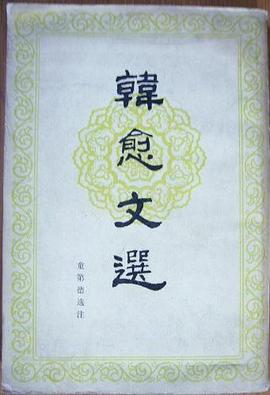 韓愈文選
童第德选注